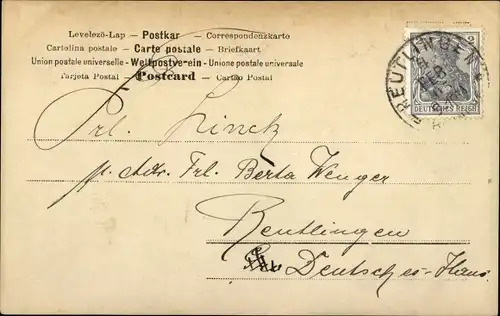 Levelező-Lap — Postkar — Correspondenzkarte
Cartolina postale — Carte postale — Briefkaart
Union postale universelle — Weltpostverein — Unione postale universale
Tarjeta Postal — Postcard — Cartão Postal
REUTLINGEN
2
DEUTSCHES REICH
Frl. Linck
p. Adr. Frl. Berta Wenger
Reutlingen
Deutsches-Haus.